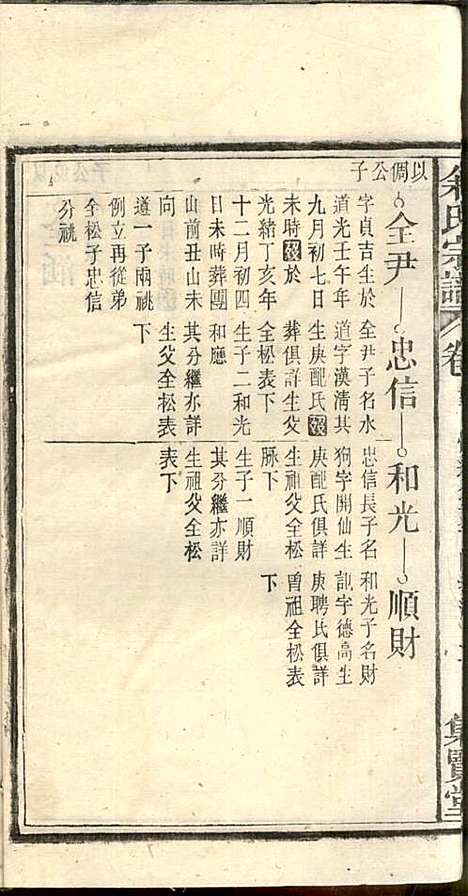 氏宗譜 卷
集賢堂
以倜公子
全尹 忠信 和光 順財
字貞吉生於
道光壬午年
九月初七日
未時歿於
光緒丁亥年
十二月初四
日未時葬團
山前丑山未
向
遵一子兩祧
例立再從弟
全松子忠信
分祧
全尹子名水
道字漢清其
生庚配氏歿
葬俱詳生父
全松表下
生子二和光
和應
其分繼亦詳
生父全松表
下
忠信長子名
狗字開仙生
庚配氏俱詳
生祖父全松
脉下
生子一順財
其分繼亦詳
生祖父全松
表下
和光子名財
訓字德高生
庚聘氏俱詳
曾祖全松表
下